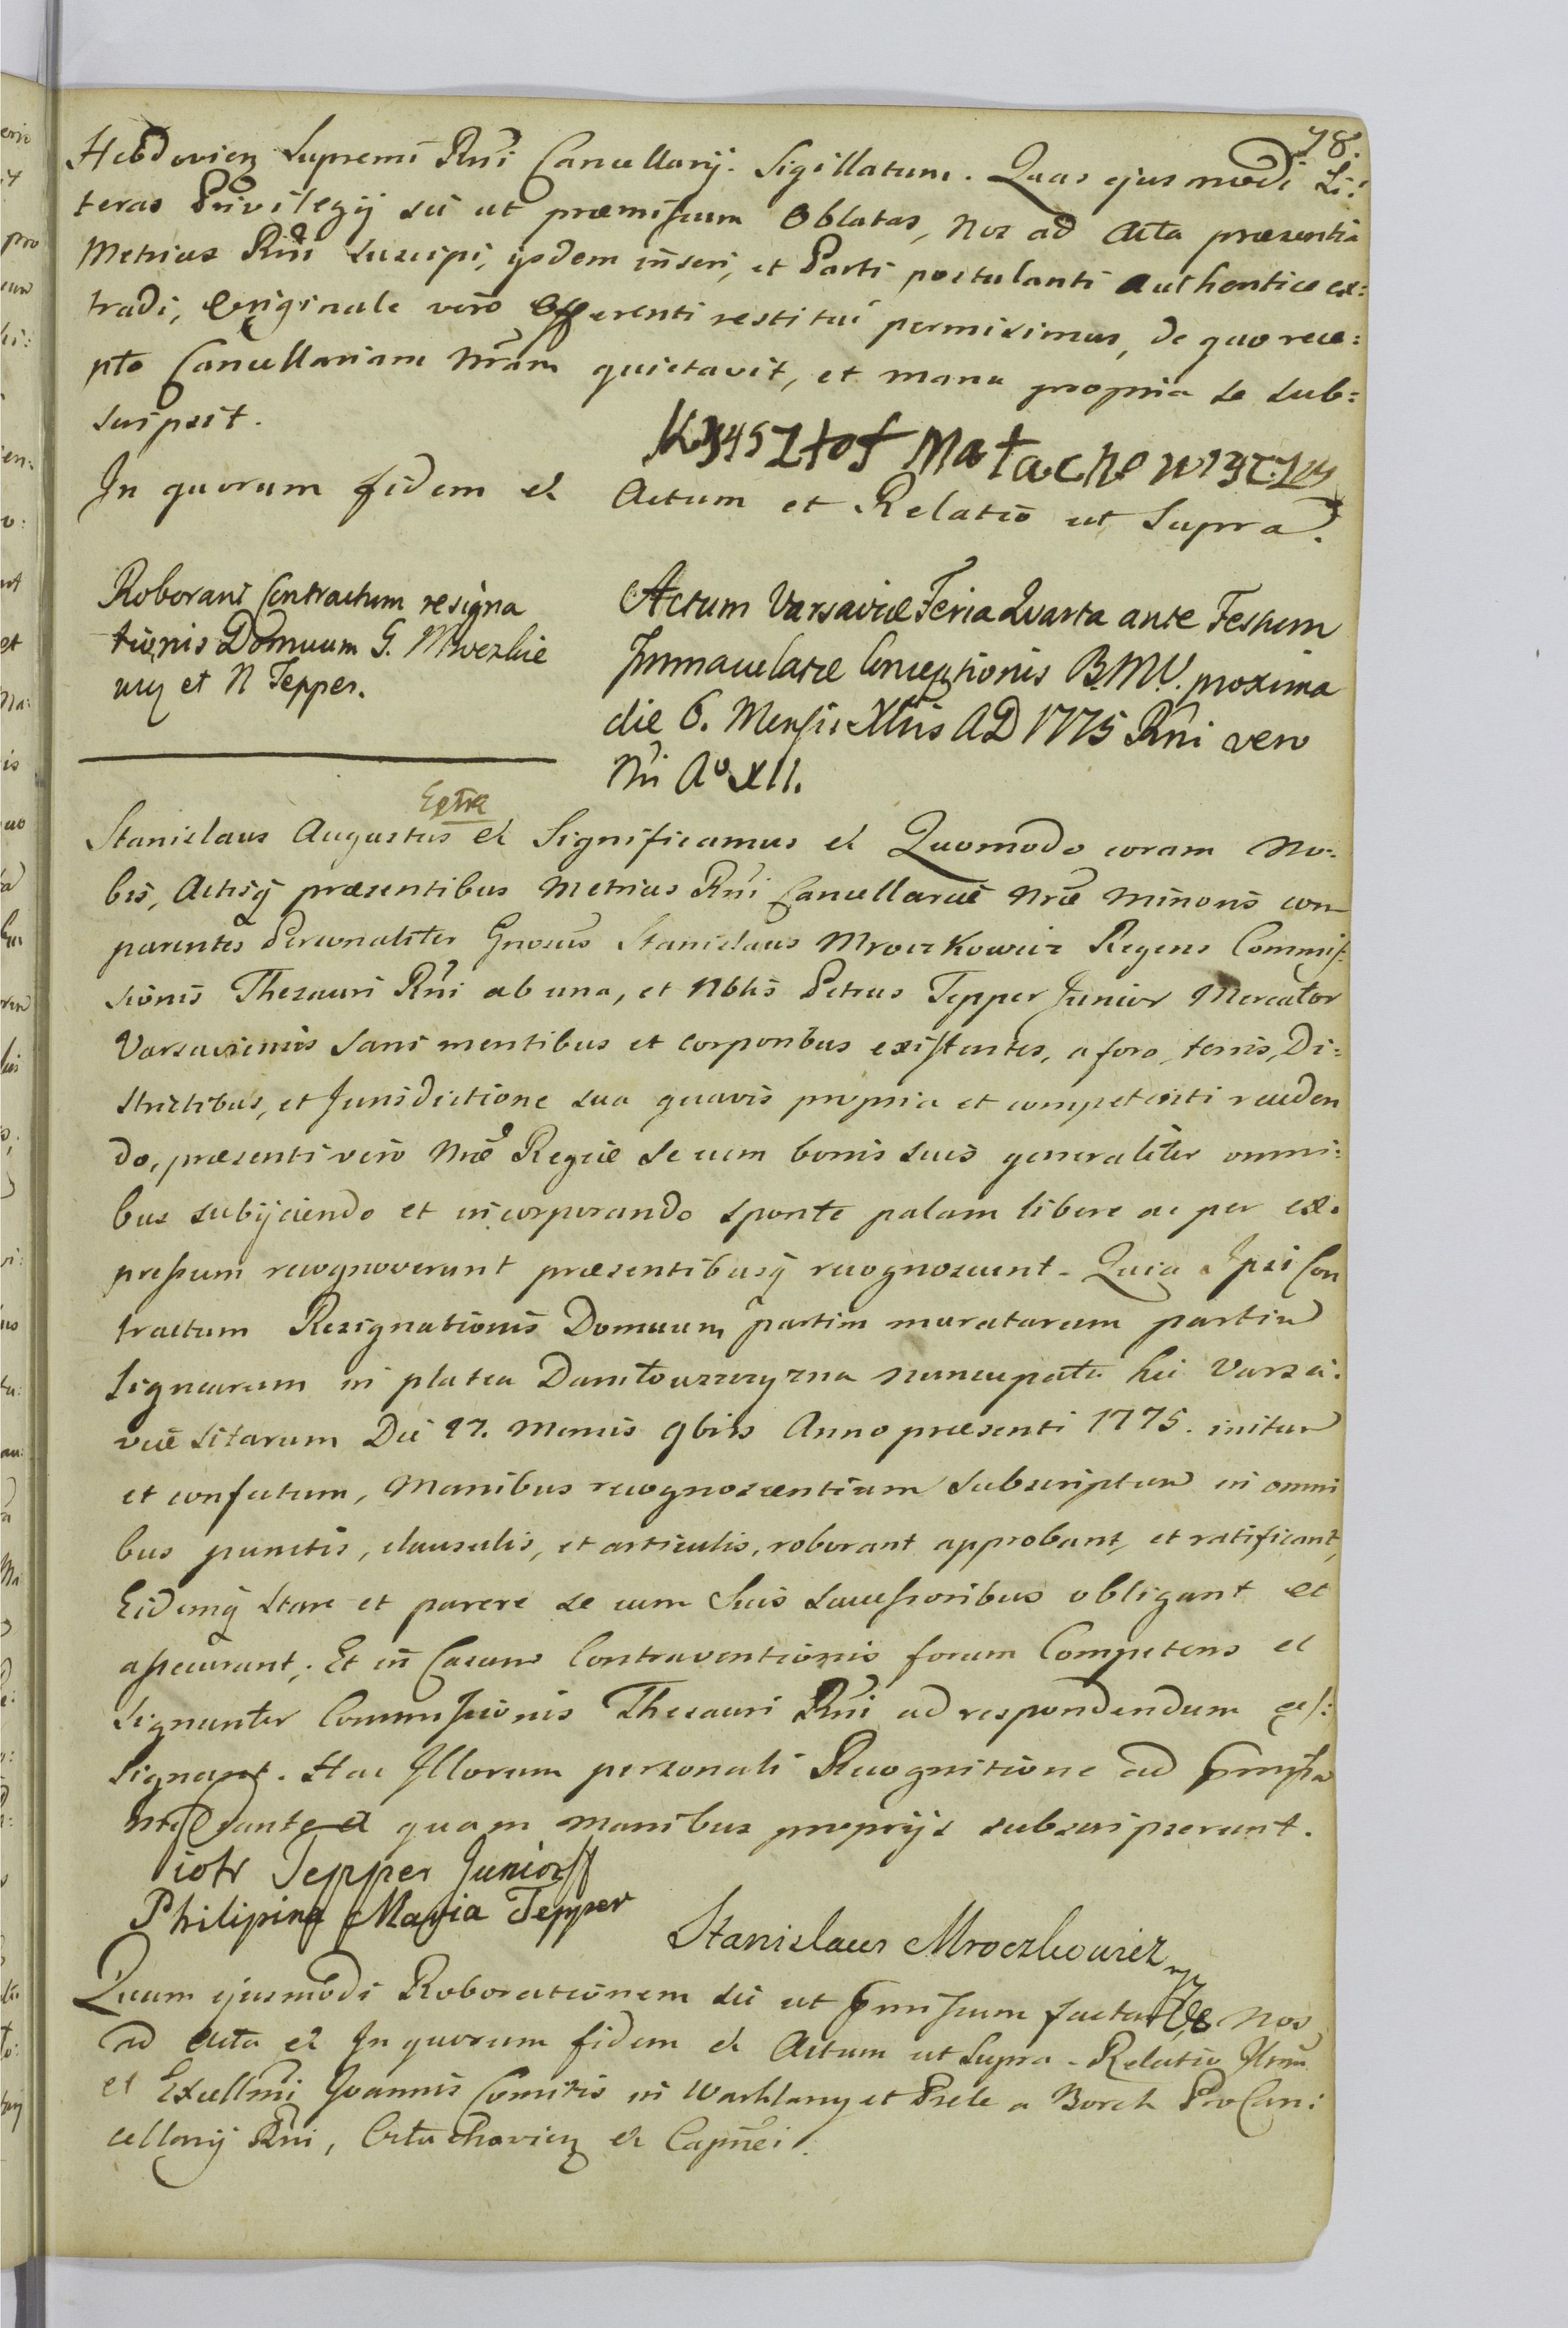 78.
Hebdovien Supremi Rni Cancellarij. Sigillatum. Quas ejusmodi Li:
teras Privilegij sic ut præmissum Oblatas, Nos ad Acta præsentia
Metrices Rni suscipi, ijsdem inseri, et Parti postulanti authentice ex:
tradi, Originale vero Offerenti restitui permisimus, de quo rece:
pto Cancellariam Nram quietavit, et manu propria se sub:
scripsit.
Krzysztof Małachowski
In quorum fidem et Actum et Relatio ut Supra.
Roborant Contractum resigna
tionis Domuum G. Mroczkie
wicz et N Tepper.
Actum Varsaviæ Feria Quarta ante Festum
Immaculatæ Conceptionis B.M.V. proxima
die 6. Mensis Xbris AD 1775 Rni vero
Nri Ao XII.
Extra
Stanislaus Augustus et Significamus et Quomodo coram No:
bis, Actisq præsentibus Metrices Rni Cancellariæ Nræ Minoris com
parentes Personaliter Gnosus Stanislaus Mroczkowicz Regens Commis:
sionis Thesauri Rni ab una, et Nblis Petrus Tepper Junior Mercator
Varsaviensis sani mentibus et corporibus existentes, a foro, terris, Di:
strictibus, et Jurisdictione sua quavis propria et competenti receden
do, præsenti vero Nræ Regiæ se cum bonis suis generaliter omni:
bus subijciendo et incorporando sponte palam libere ac per ex:
pressum recognoverunt præsentibusq recognoscunt. Quia Ipsi Con
tractum Resignationis Domuum partim muratarum partim
lignearum in platea Daniłowiczowyzna nuncupata hic Varsa:
viæ sitarum Die 27. Mensis 9bris Anno præsenti 1775. initum
et confectum, Manibus recognoscentium subscriptum in omni
bus punctis, clausulis, et articulis, roborant approbant, et ratificant,
Eidemq stare et parere se cum Suis Successoribus obligant et
assecurant; Et in Casum Contraventionis forum Competens et
signanter Commissionis Thesauri Rni ad respondendum as:
signant. Hac Illorum personali Recognitione ad præmissa
mediante quam manibus proprijs subscripserunt.
Piotr Tepper Junior
Philipina Maria Tepper
Stanislaus Mroczkowicz
Quam ejusmodi Roborationem sic ut præmissum factam Nos
ad Acta et In quorum fidem et Actum ut Supra - Relatio Illrmi
et Excellmi Joannis Comitis in Warklany et Prele a Borch ProCan:
cellarij Rni, Lituchovien et Capnei.